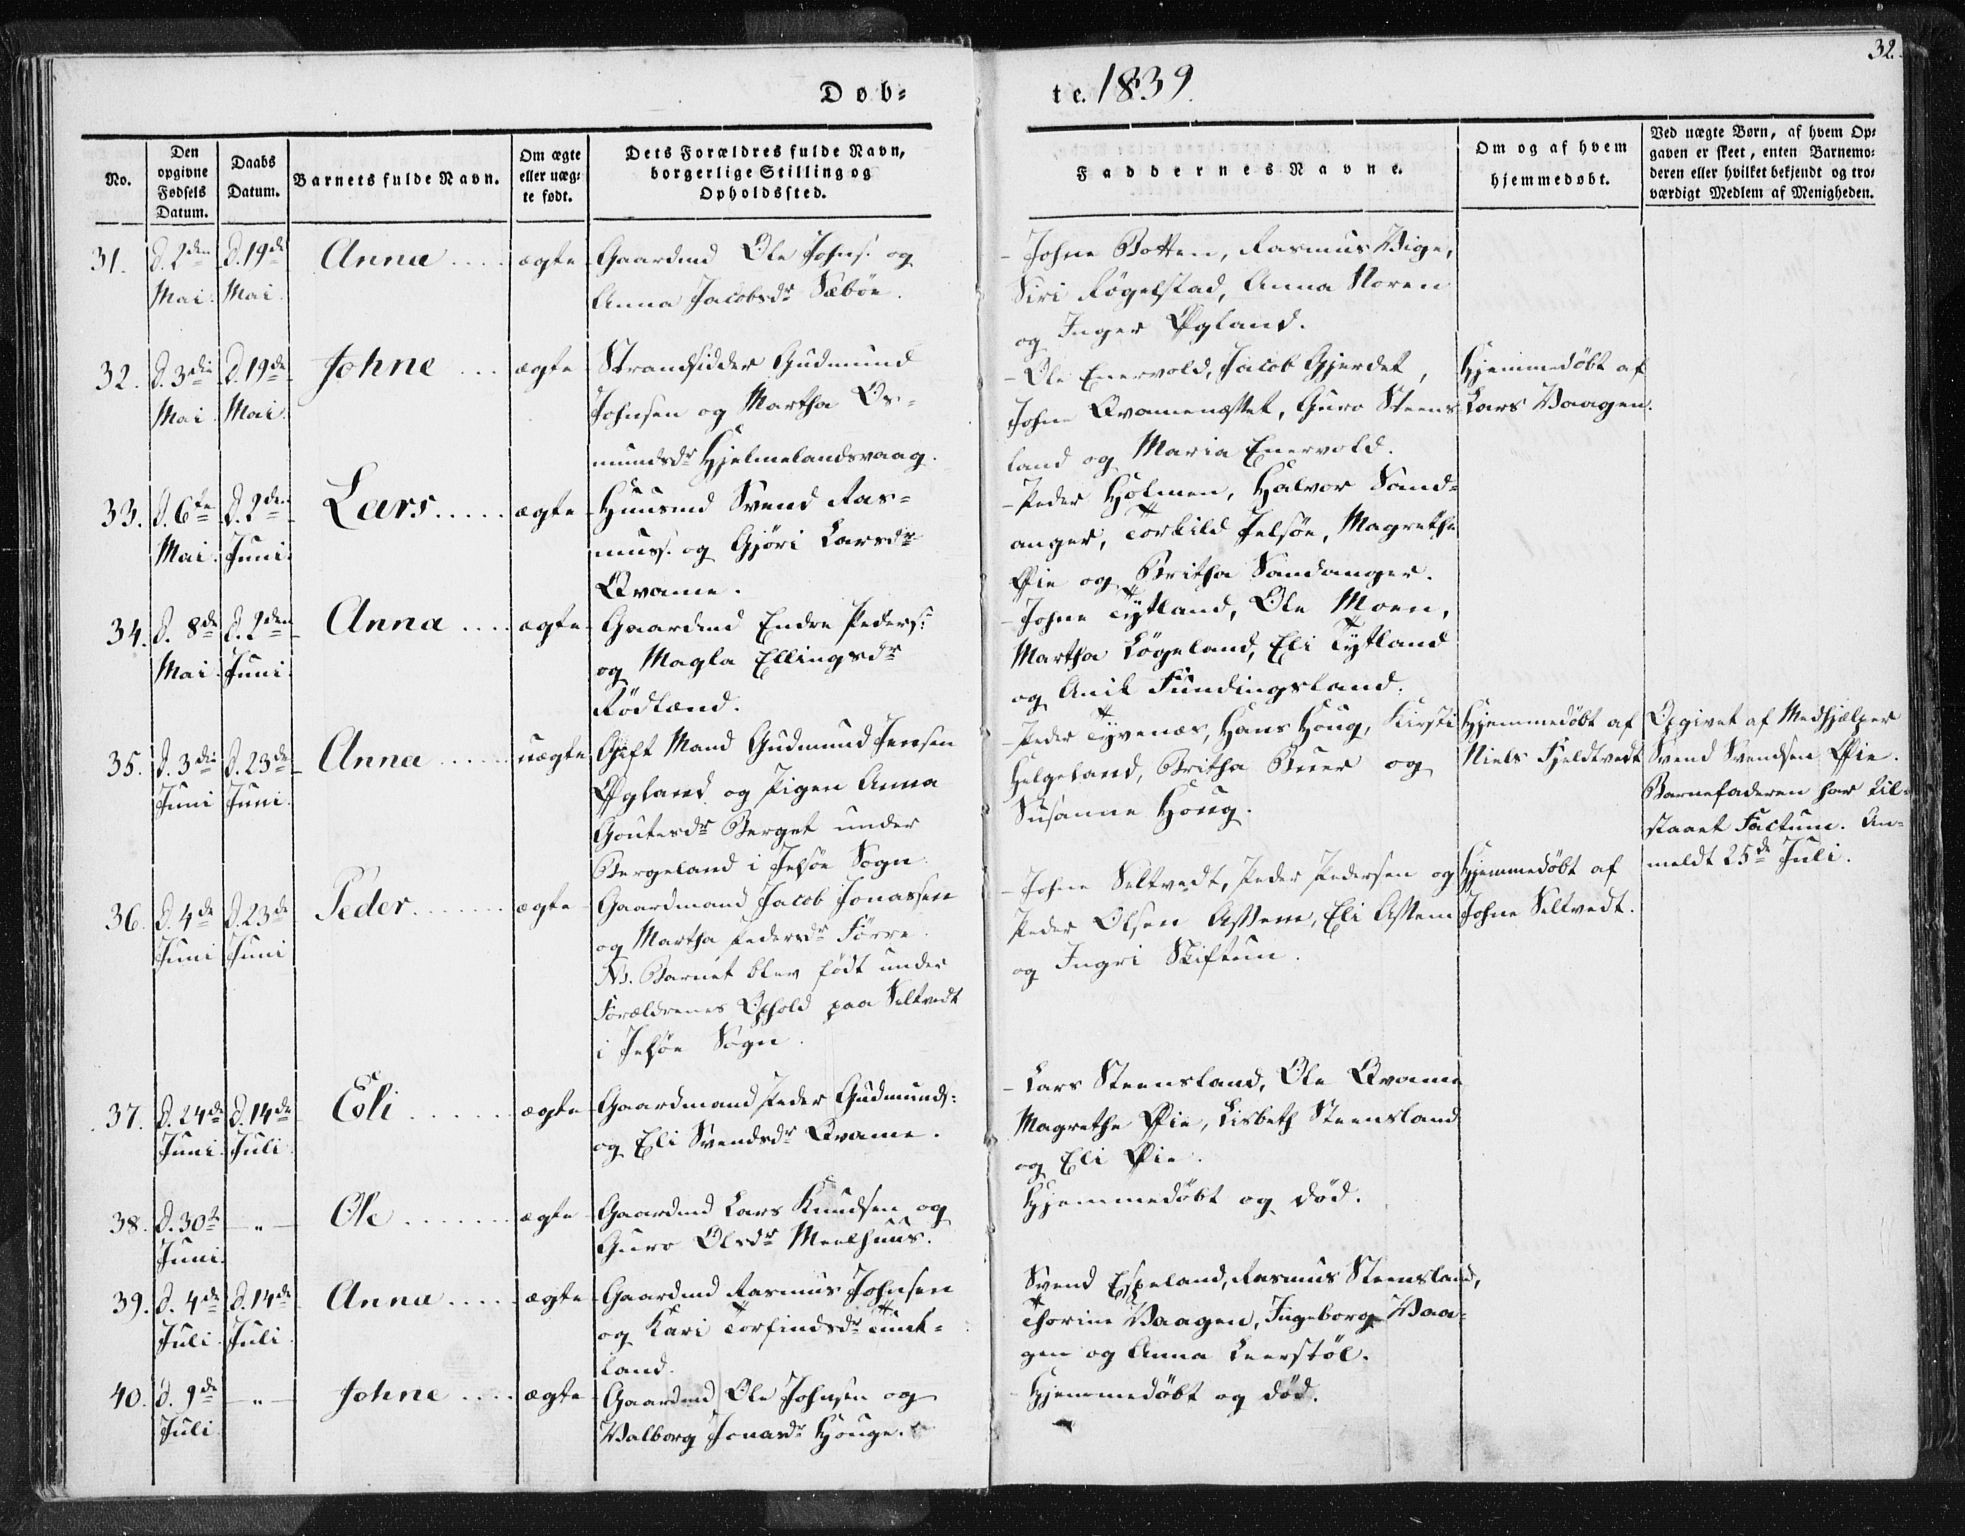 32.
Døb=
te. 1839.
No.
Den opgivne Fødsels Datum.
Daabs Datum.
Barnets fulde Navn.
Om ægte eller uæg= te født.
Dets Forældres fulde Navn, borgerlige Stilling og Opholdssted.
Faddernes Navne.
Om og af hvem hjemmedøbt.
Ved uægte Børn, af hvem Op= gaven er skeet, enten Barnemo= deren eller hvilket bekjendt og tro= værdigt Medlem af Menigheden.
31. d. 2den Mai. d. 19de Mai. Anna .... ægte
Gaardmd Ole Johns. og
Anna Jacobsdr Sæbøe.
- Johne Botten, Rasmus Wige,
Siri Røgelstad, Anna Noren
og Inger Øgland.
32. d. 3die Mai. d. 19de Mai. Johne ... ægte
Strandsidder Gudmund
Johnsen og Martha Os=
mundsdr Hjelmelandsvaag.
- Ole Enervold, Jacob Gjerdet,
Johne Kvamenæsset, Guro Steens
land og Maria Enervold.
Hjemmedøbt af
Lars Vaagen.
33. d. 6te Mai. d. 2den Juni. Lars ..... ægte
Huusmd Svend Ras=
muss. og Gjøri Larsdr
Kvame.
- Peder Holmen, Halvor Sand=
anger, Torkild Jelsøe, Magrethe
Øie og Britha Sandanger.
34. d. 8de Mai. d. 2den Juni. Anna .... ægte
Gaardmd Endre Peders.
og Magla Ellingsdr
Rødland.
- Johne Tytland, Ole Moen,
Martha Løgeland, Eli Tytland
og Anik Fundingsland.
35. d. 3die Juni d. 23de Juni. Anna ..... uægte
Gift Mand Gudmund Jensen
Øgland og Pigen Anna
Goutesdr Berget under
Bergeland i Jelsøe Sogn.
- Peder Tyvenæs, Hans Houg, Kirsti
Helgeland, Britha Buer og
Susanne Houg.
Hjemmedøbt af
Niels Fjeldtvedt
Opgivet af Medhjælper
Svend Svendsen Øie.
Barnefaderen har til=
staaet Factum. An=
meldt 25de Juli.
36. d. 4de Juni d. 23de Juni Peder ....... ægte
Gaardmand Jacob Jonassen
og Martha Pedersdr Førre.
NB. Barnet blev født under
Forældrenes Ophold paa Seltvedt
i Jelsøe Sogn.
- Johne Seltvedt, Peder Pedersen og
Peder Olsen Astem, Eli Astem
og Ingri Skiftun.
Hjemmedøbt af
Johne Seltvedt.
37. d. 24de Juni. d. 14de Juli. Eli ...... ægte
Gaardmand Peder Gudmunds:
og Eli Svendsdr Kvame.
- Lars Steensland, Ole Kvame
Magrethe Øie, Lisbeth Steensland
og Eli Øie.
38. d. 30te Juni. - " - Ole ....... ægte
Gaardmd Lars Knudsen og
Guro Olsdr Meelhuus.
Hjemmedøbt og død.
39. d. 4de Juli. d. 14de Juli. Anna ..... ægte
Gaardmd Rasmus Johnsen
og Kari Torfindsdr Tunt=
land.
Svend Espeland, Rasmus Steensland,
Thorine Vaagen, Ingeborg Vaa=
gen og Anna Leerstøl.
40. d. 9de Juli - " - Johne .... ægte
Gaardmd Ole Johnsen og
Valborg Jonasdr Houge.
Hjemmedøbt og død.